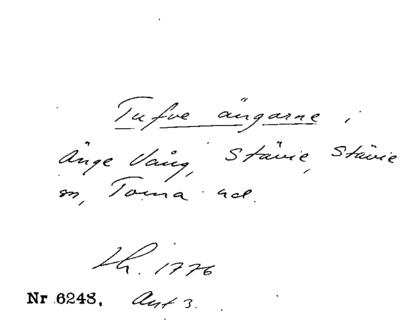 Tufve ängarne i
Änge Vång, Stävie, Stävie
sn, Torna hd.
Lh. 1776
Nr 6248. Akt 3.